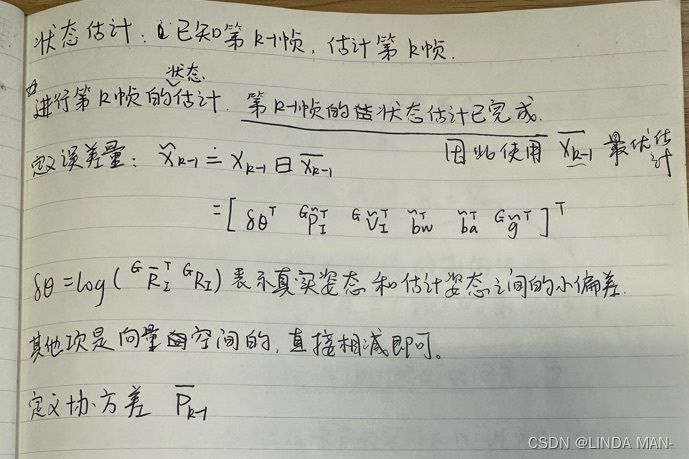 状态估计：已知第k-1帧，估计第k帧.
状态
☆进行第k帧的估计. 第k-1帧的状态估计已完成.
定义误差量： x̃ₖ₋₁ ≐ xₖ₋₁ ⊟ x̄ₖ₋₁ 因此使用 x̄ₖ₋₁ 最优估计
= [ δθᵀ ᴳp̃ᵀ_I ᴳṽᵀ_I b̃ᵀ_w b̃ᵀ_a ᴳg̃ᵀ ]ᵀ
δθ = log( ᴳR̄ᵀ_I ᴳR_I ) 表示真实姿态和估计姿态之间的小偏差.
其他项是向量空间的，直接相减即可。
定义协方差 P̄ₖ₋₁
CSDN @LINDA MAN-